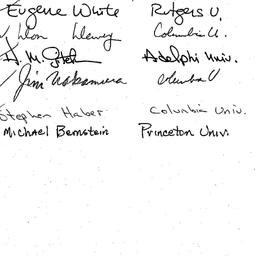 Eugene White Rutgers U.
Columbia U.
A. M. Adelphi Univ.
Jim Nakamura Columbia U
Stephen Haber Columbia Univ.
Michael Bernstein Princeton Univ.